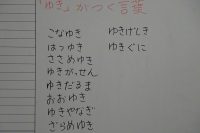 「ゆき」がつく言葉
こなゆき
はつゆき
ささめゆき
ゆきがっせん
ゆきだるま
おおゆき
ゆきやなぎ
ざらめゆき
ゆきげしき
ゆきぐに